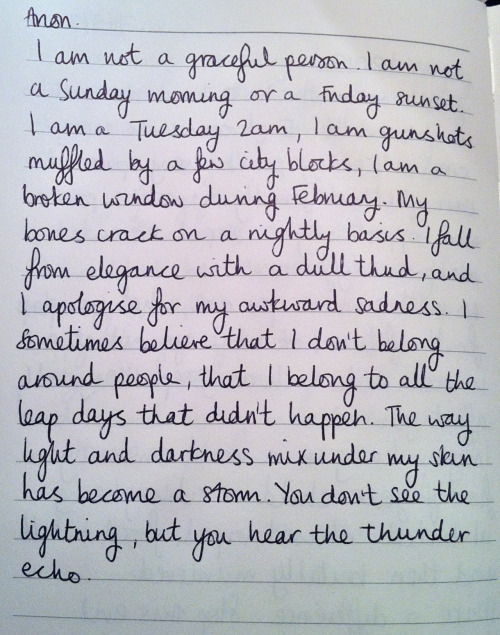 Anon.
I am not a graceful person. I am not
a Sunday morning or a Friday sunset.
I am a Tuesday 2am, I am gunshots
muffled by a few city blocks, I am a
broken window during February. My
bones crack on a nightly basis. I fall
from elegance with a dull thud, and
I apologise for my awkward sadness. I
sometimes believe that I don't belong
around people, that I belong to all the
leap days that didn't happen. The way
light and darkness mix under my skin
has become a storm. You don't see the
lightning, but you hear the thunder
echo.